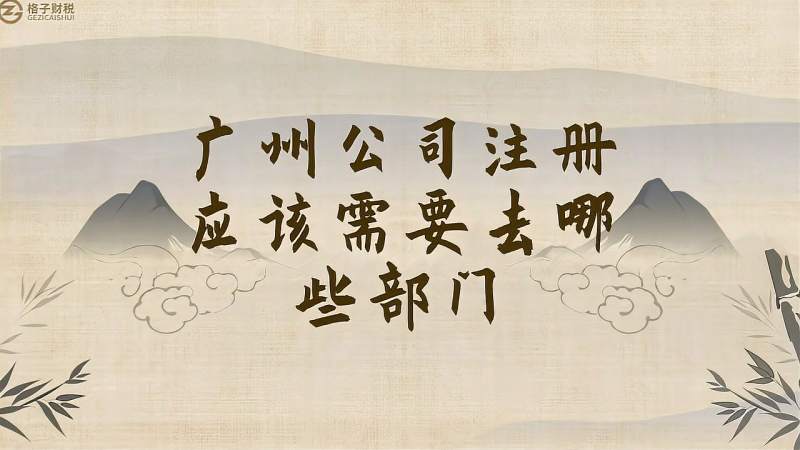 格子财税
GEZICAISHUI
广州公司注册
应该需要去哪
些部门